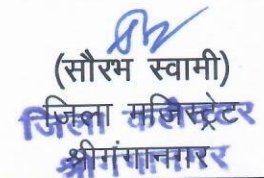 (सौरभ स्वामी)
जिला मजिस्ट्रेटर
श्रीगंगानगर
जिला कलेक्टर
श्रीगंगानगर